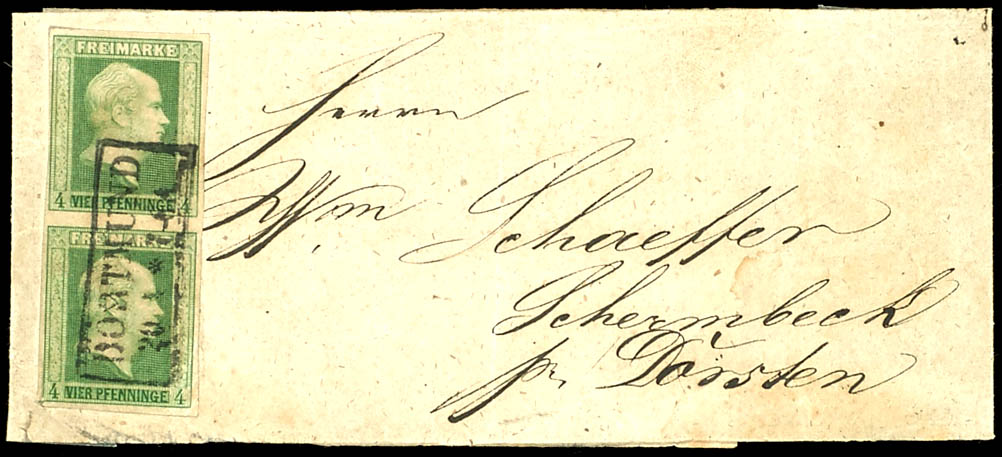 FREIMARKE
4 VIER PFENNINGE 4
FREIMARKE
4 VIER PFENNINGE 4
DORTMUND
Herrn
Wm Schaeffer
Schermbeck
pr. Dorsten